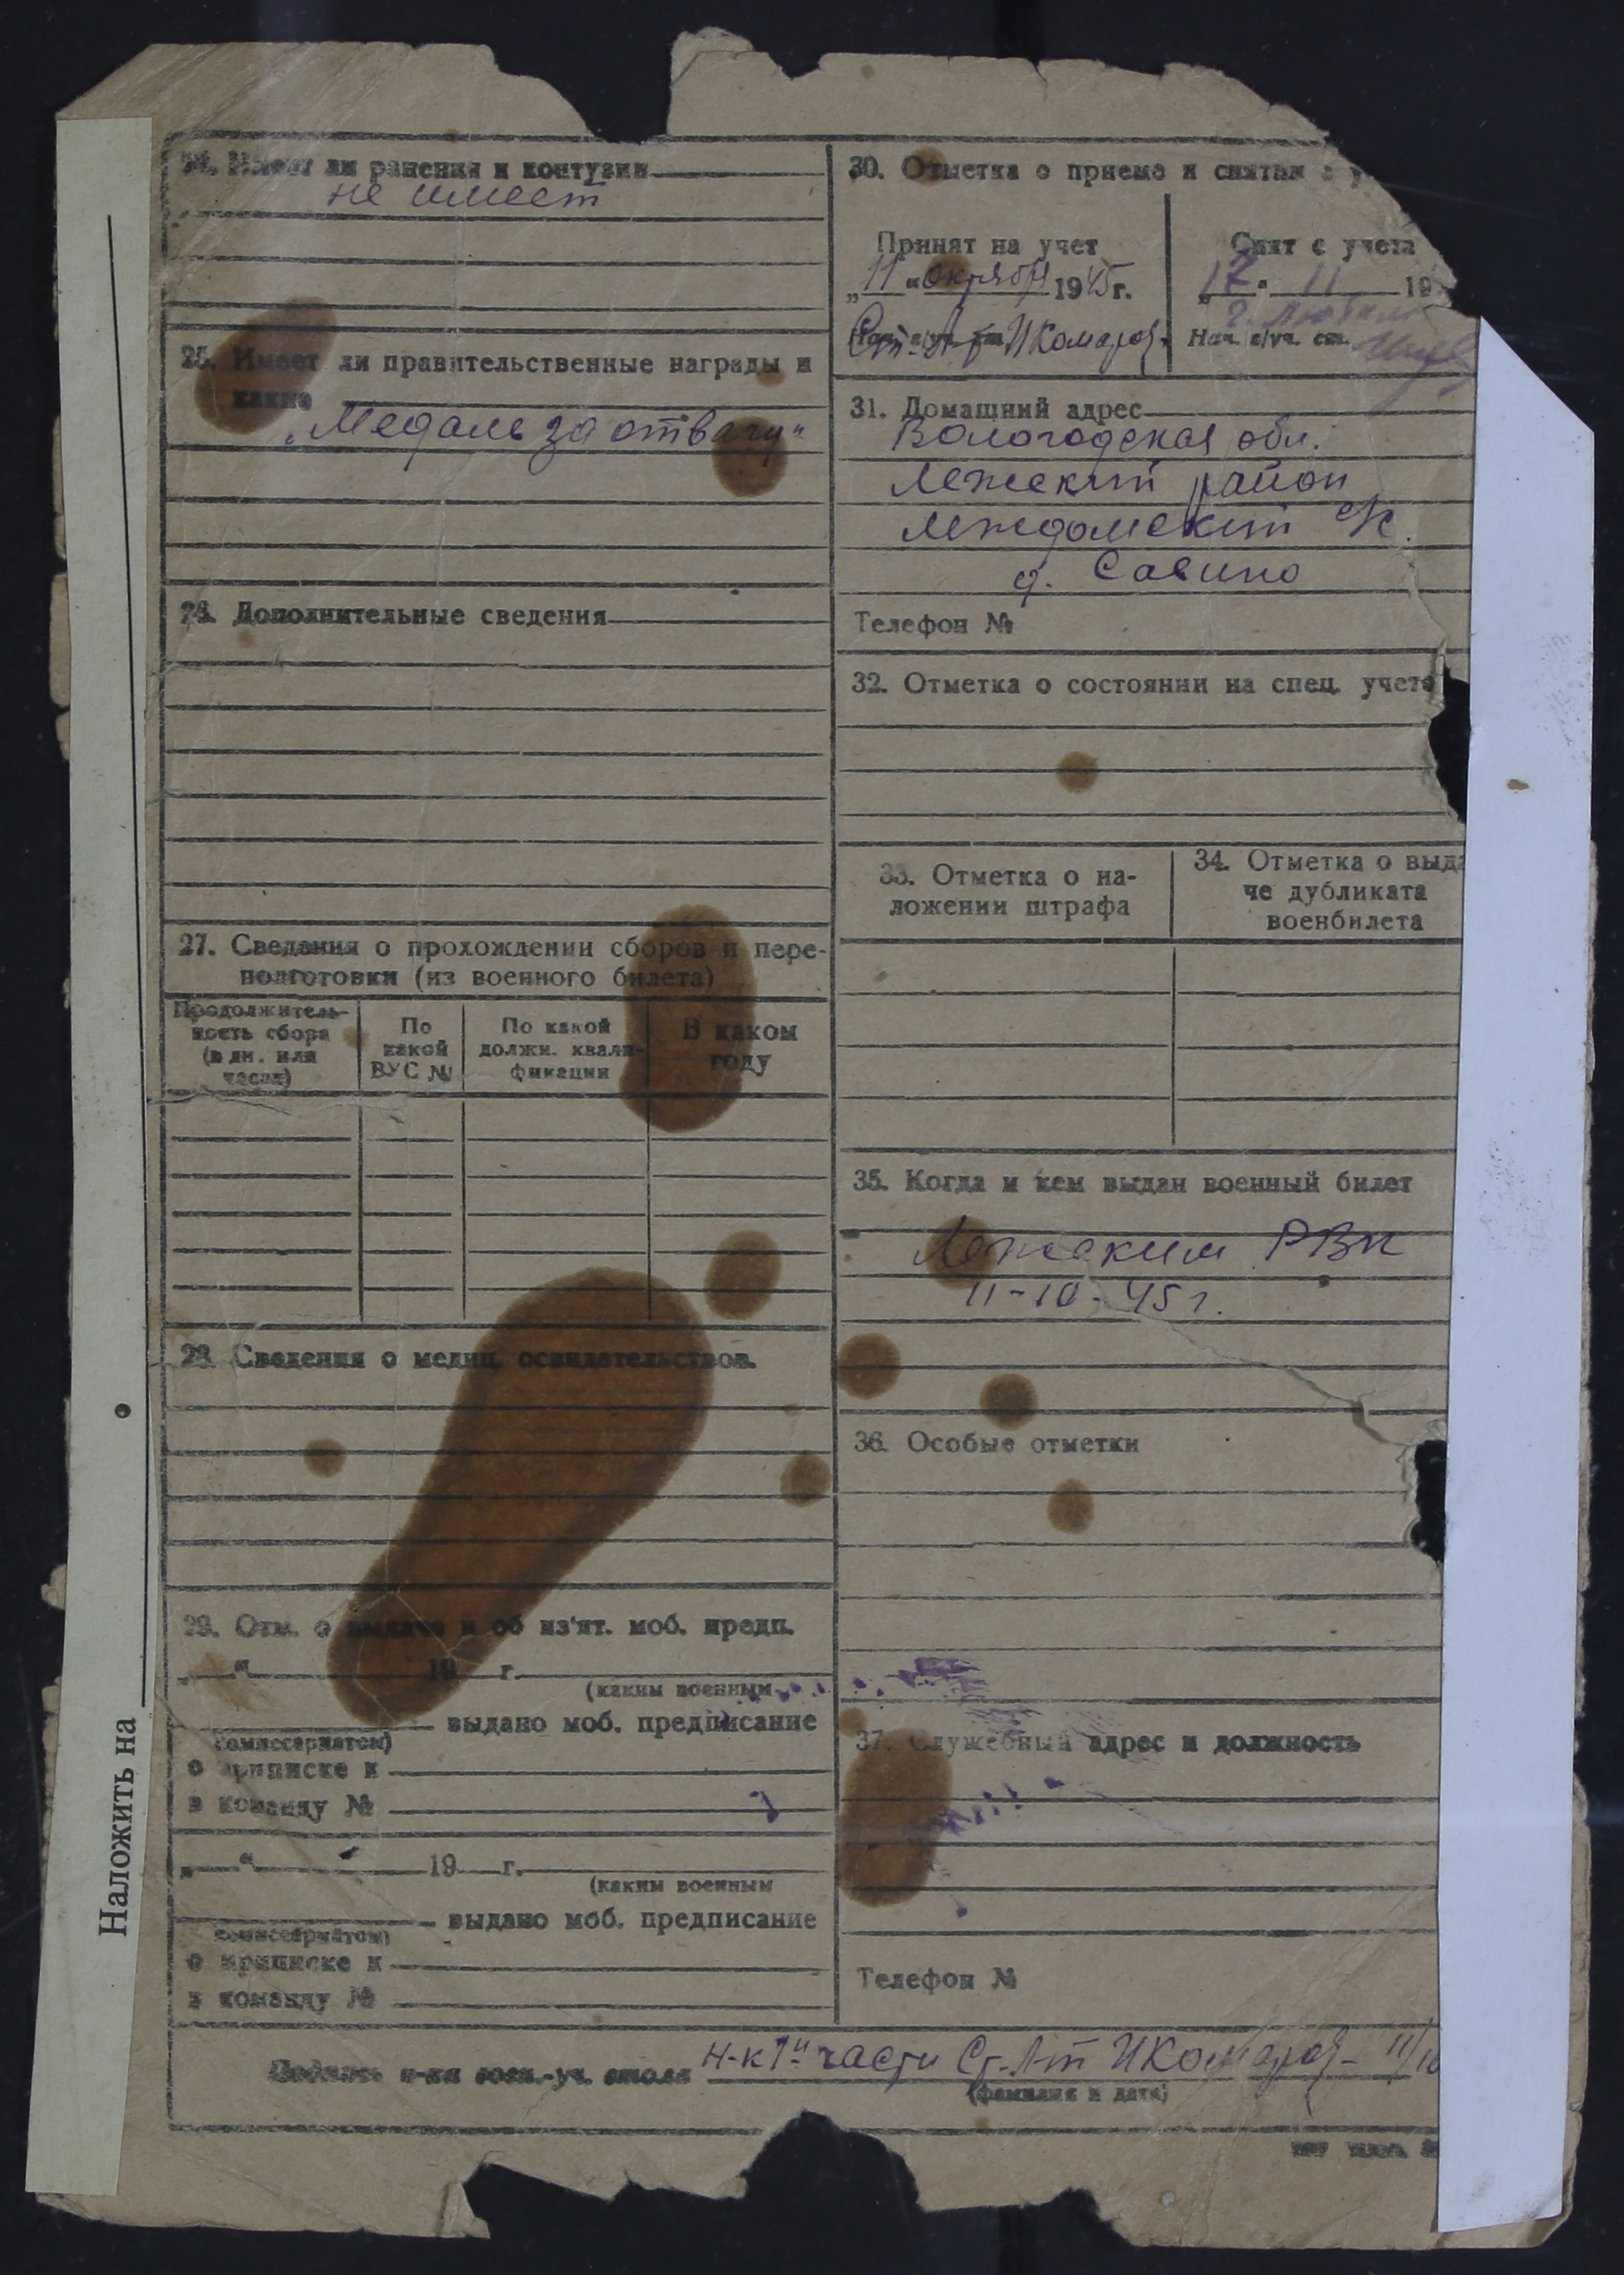 24. Имеет ли ранения и контузии
не имеет
25. Имеет ли правительственные награды и
какие
„Медаль за отвагу"
26. Дополнительные сведения
27. Сведения о прохождении сборов и пере-
подготовки (из военного билета)
Продолжитель-
ность сбора
(в дн. или
часах)
По
какой
ВУС №
По какой
должн. квали-
фикации
В каком
году
28. Сведения о медиц. освидетельствов.
29. Отм. о выдаче и об из'ят. моб. предп.
„ “ 19 г.
(каким военным
комиссариатом)
выдано моб. предписание
о приписке к
в команду №
„ “ 19 г.
(каким военным
комиссариатом)
выдано моб. предписание
о приписке к
в команду №
30. Отметка о приеме и снятии с у
Принят на учет
„11“ октября 1945 г.
Ст. л-т ИКомаров
Снят с учета
„17“ 11 19
Нач. в/уч. ст.
31. Домашний адрес
Вологодская обл.
Лежский район
Леждомский с/с.
д. Савино
Телефон №
32. Отметка о состоянии на спец. учете
33. Отметка о на-
ложении штрафа
34. Отметка о выда
че дубликата
военбилета
35. Когда и кем выдан военный билет
Лежским РВК
11-10-45 г.
36. Особые отметки
37. Служебный адрес и должность
Телефон №
Подпись н-ка воен.-уч. стола Н-к 1й части Ст. л-т ИКомаров – 11/10
(фамилия и дата)
Наложить на